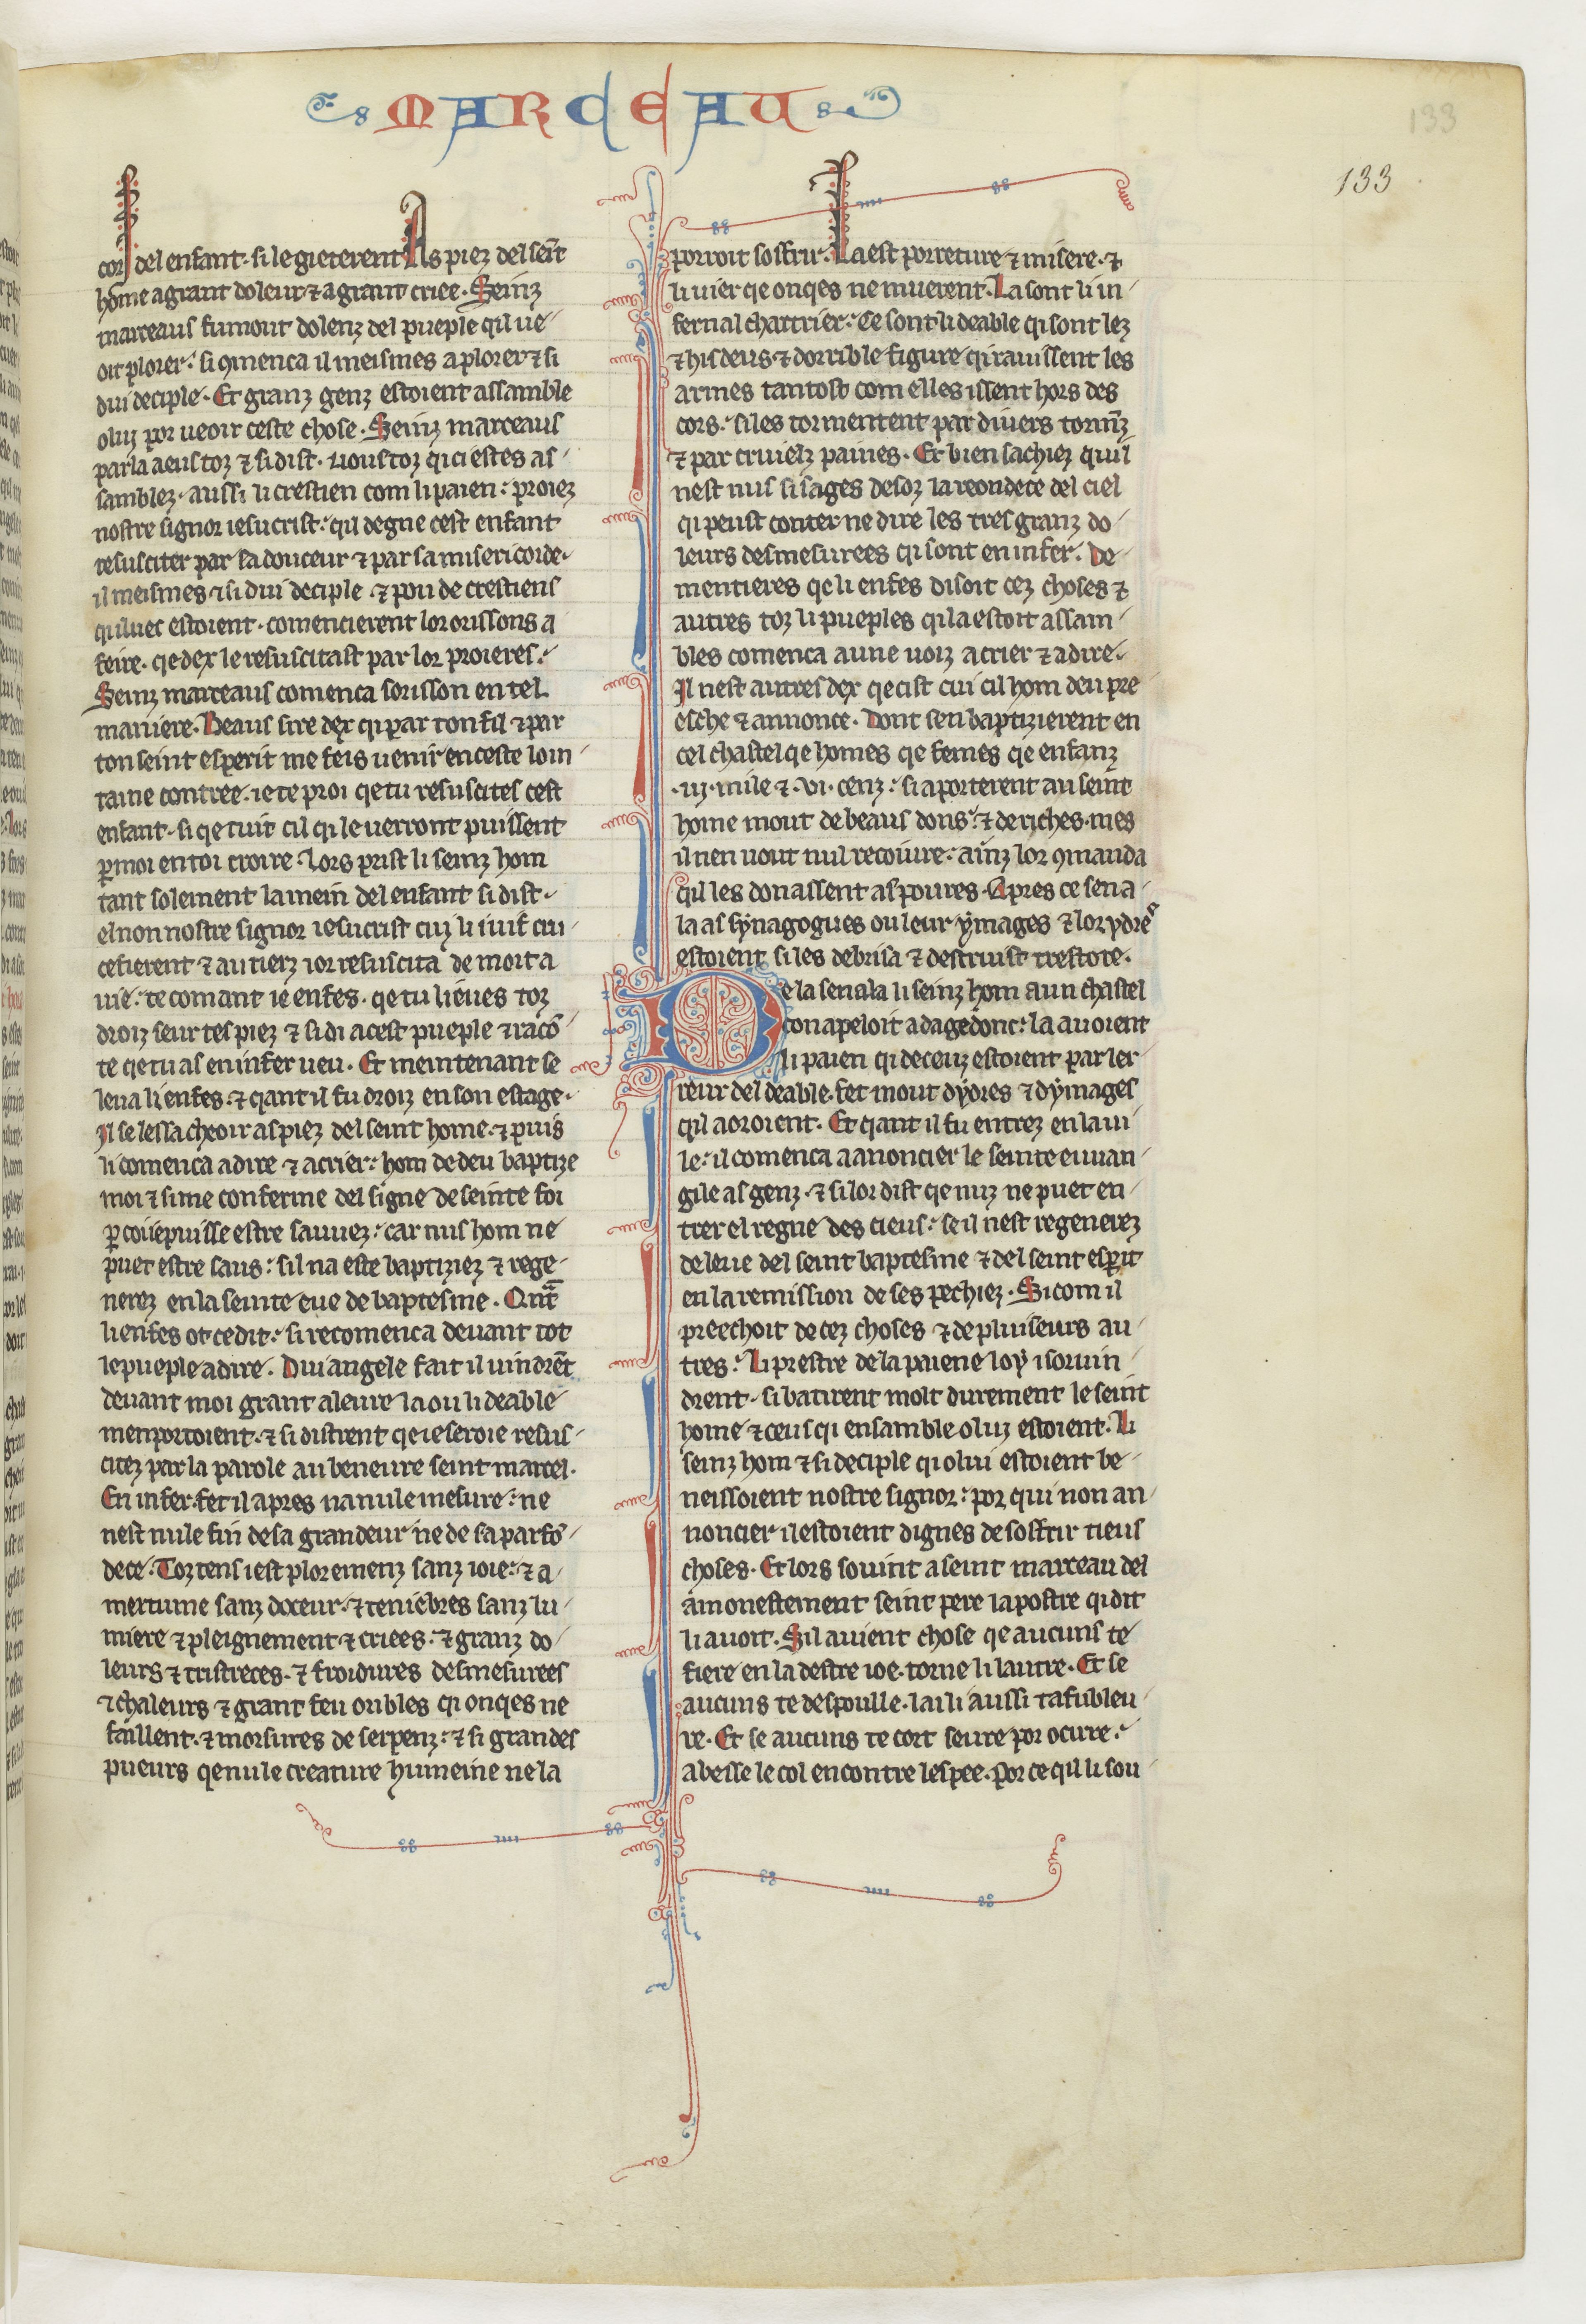 MARCEAU
133
133
cors del enfant· si le gieterent As piez del seīt
home a grant doleur ⁊ a grant criee· Seinz
marceaus fu mout dolenz del pueple qil ue-
oit plorer· si ꝯmenca il meismes a plorer ⁊ si
dui deciple· Et granz genz estoient assamble
o lui por ueoir ceste chose· Seinz marceaus
parla a eus toz ⁊ si dist· uous toz qi ci estes as-
samblez· aussi li crestien com li paien· proiez
nostre signor iesucrist· qil degne cest enfant
resusciter par sa douceur ⁊ par sa misericorde·
il meismes ⁊ si dui deciple ⁊ pou de crestiens
qi iluec estoient· comencierent lor orissons a
feire· qe dex le resuscitast par lor proieres·
Seinz marceaus comenca sorisson en tel
maniere· Beaus sire dex qi par ton fil ⁊ par
ton seint esperit me feis uenir en ceste loin-
taine contree· ie te proi qe tu resuscites cest
enfant· si qe tuit cil qi le uerront puissent
ꝑ moi en toi croire· Lors prist li seinz hom
tant solement la mein del enfant si dist·
el non nostre signor iesucrist cui li iuif cru-
cefierent ⁊ au tierz ior resuscita de mort a
uie· te comant ie enfes· qe tu lieues toz
droiz seur tes piez ⁊ si di a cest pueple ⁊ racō-
te qe tu as en infer ueu· Et meintenant se
leua li enfes· ⁊ qant il fu droiz en son estage·
Il se lessa cheoir as piez del seint home· ⁊ puis
li comenca a dire ⁊ a crier· hom de deu baptize
moi ⁊ si me conferme del signe de seinte foi
ꝑ coi ie puisse estre sauuez· car nus hom ne
puet estre saus· sil na este baptiziez ⁊ rege-
nerez en la seinte eue de baptesme· Qnt
li enfes ot ce dit· si recomenca deuant tot
le pueple a dire· Dui angele fait il uindrēt
deuant moi grant aleure la ou li deable
menportoient· ⁊ si distrent qe ie seroie resus-
citez par la parole au beneure seint marcel·
En infer· fet il apres na nule mesure· ne
nest nule fin de sa grandeur ne de sa parfō-
dece· Toz tens i est ploremenz sanz ioie· ⁊ a-
mertume sanz doceur· ⁊ teniebres sanz lu-
miere ⁊ pleignement ⁊ criees· ⁊ granz do-
leurs ⁊ tristreces· ⁊ froidures desmesurees
⁊ chaleurs ⁊ grant feu oribles qi onqes ne
faillent· ⁊ morsures de serpenz· ⁊ si grandes
pueurs qe nule creature humeine ne la
porroit soffrir· La est porreture ⁊ misere· ⁊
li uier qe onqes ne muerent· La sont li in-
fernal chartrier· Ce sont li deable qi sont lez
⁊ hisdeus ⁊ dorrible figure qi rauissent les
armes tantost com elles issent hors des
cors· si les tormentent par diuers tormz̄
⁊ par cruielz paines· Et bien sachiez quil
nest nus si sages desoz la reondece del ciel
qi peust conter ne dire les tres granz do-
leurs desmesurees qi sont en infer· De-
mentieres qe li enfes disoit cez choses ⁊
autres toz li pueples qi la estoit assam-
bles comenca a une uoiz a crier ⁊ a dire·
Il nest autres dex qe cist cui cil hom deu pre-
esche ⁊ annonce· Dont sen baptizierent en
cel chastel qe homes qe femes qe enfanz
·iij· mile ⁊ ·vi· cenz· si aporterent au seint
home mout de beaus dons· ⁊ de riches· mes
il nen uout nul recoiure· ainz lor ꝯmanda
qil les donassent as poures· Apres ce sen a-
la as synagogues ou leur ymages ⁊ lor ydres
estoient si les debrisa ⁊ destruist trestote·
De la sen ala li seinz hom a un chastel
con apeloit adagedonc· la auoient
li paien qi deceuz estoient par ler-
reur del deable· fet mout dydres ⁊ dymages
qil aoroient· Et qant il fu entrez en la ui-
le· il comenca a anoncier le seinte euuan-
gile as genz· ⁊ si lor dist qe nuz ne puet en-
trer el regne des cieus· se il nest regenerez
de leue del seint baptesme ⁊ del seint esꝑit
en la remission de ses pechiez· Si com il
preechoit de cez choses ⁊ de pluiseurs au-
tres· Li prestre de la paiene loy i soruin-
drent· si batirent molt durement le seint
home ⁊ ceus qi ensamble o lui estoient· Li
seinz hom ⁊ si deciple qi o lui estoient be-
neissoient nostre signor· por qui non an-
noncier il estoient dignes de soffrir tieus
choses· Et lors souint a seint marceau del
amonestement seint pere lapostre qi dit
li auoit· Sil auient chose qe aucuns te
fiere en la destre ioe· torne li lautre· Et se
aucuns te despoulle· lai li aussi tafubleu-
re· Et se aucuns te cort seure por ocirre·
abesse le col encontre lespee· Por ce qil li sou-